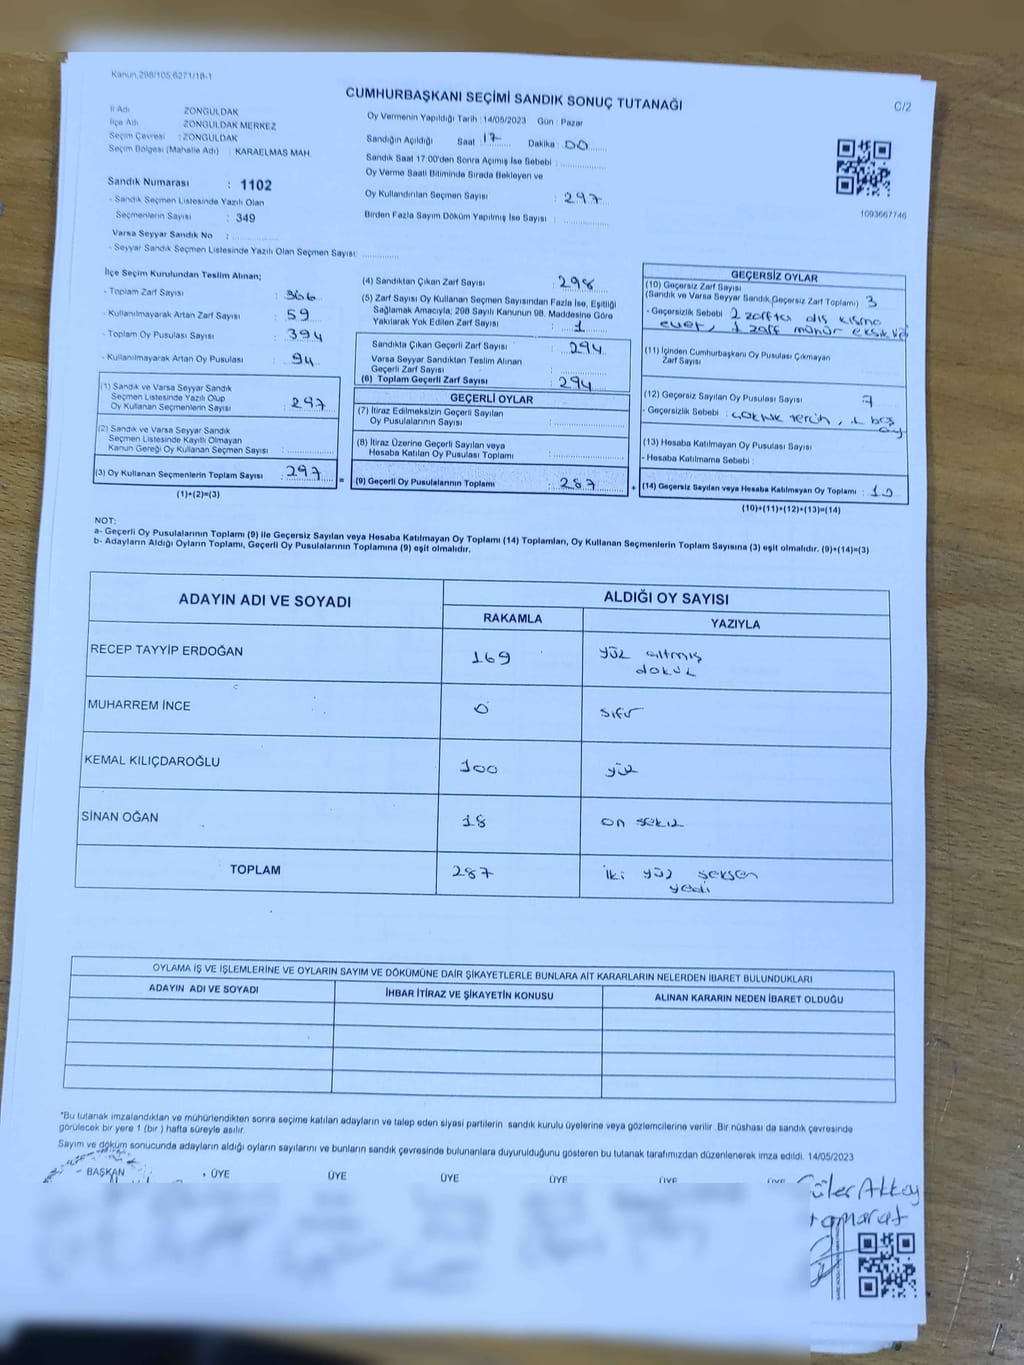 Kanun,298/105,6271/18-1
CUMHURBAŞKANI SEÇİMİ SANDIK SONUÇ TUTANAĞI
C/2
İl Adı : ZONGULDAK
İlçe Adı : ZONGULDAK MERKEZ
Seçim Çevresi : ZONGULDAK
Seçim Bölgesi (Mahalle Adı) : KARAELMAS MAH.
Sandık Numarası : 1102
- Sandık Seçmen Listesinde Yazılı Olan
Seçmenlerin Sayısı : 349
Varsa Seyyar Sandık No : ..............
- Seyyar Sandık Seçmen Listesinde Yazılı Olan Seçmen Sayısı: ............
Oy Vermenin Yapıldığı Tarih : 14/05/2023 Gün : Pazar
Sandığın Açıldığı Saat 17 Dakika : 00
Sandık Saat 17:00'den Sonra Açımış İse Sebebi : ..............
Oy Verme Saati Bitiminde Sırada Bekleyen ve
Oy Kullandırılan Seçmen Sayısı : 297
Birden Fazla Sayım Döküm Yapılmış İse Sayısı : ..............
1093667746
İlçe Seçim Kurulundan Teslim Alınan;
- Toplam Zarf Sayısı : 366
- Kullanılmayarak Artan Zarf Sayısı : 59
- Toplam Oy Pusulası Sayısı : 394
- Kullanılmayarak Artan Oy Pusulası : 94
(1) Sandık ve Varsa Seyyar Sandık
Seçmen Listesinde Yazılı Olup
Oy Kullanan Seçmenlerin Sayısı : 297
(2) Sandık ve Varsa Seyyar Sandık
Seçmen Listesinde Kayıtlı Olmayan
Kanun Gereği Oy Kullanan Seçmen Sayısı : ..............
(3) Oy Kullanan Seçmenlerin Toplam Sayısı : 297
(1)+(2)=(3)
(4) Sandıktan Çıkan Zarf Sayısı : 298
(5) Zarf Sayısı Oy Kullanan Seçmen Sayısından Fazla İse, Eşitliği
Sağlamak Amacıyla; 298 Sayılı Kanunun 98. Maddesine Göre
Yakılarak Yok Edilen Zarf Sayısı : 1
Sandıkta Çıkan Geçerli Zarf Sayısı : 294
Varsa Seyyar Sandıktan Teslim Alınan
Geçerli Zarf Sayısı : ..............
(6) Toplam Geçerli Zarf Sayısı : 294
GEÇERLİ OYLAR
(7) İtiraz Edilmeksizin Geçerli Sayılan
Oy Pusulalarının Sayısı : ..............
(8) İtiraz Üzerine Geçerli Sayılan veya
Hesaba Katılan Oy Pusulası Toplamı : ..............
= (9) Geçerli Oy Pusulalarının Toplamı : 287
GEÇERSİZ OYLAR
(10) Geçersiz Zarf Sayısı
(Sandık ve Varsa Seyyar Sandık Geçersiz Zarf Toplamı) : 3
- Geçersizlik Sebebi : 2 zafta dış kısmo
evet, 1 zaff mühür eksik
(11) İçinden Cumhurbaşkanı Oy Pusulası Çıkmayan
Zarf Sayısı
(12) Geçersiz Sayılan Oy Pusulası Sayısı 7
- Geçersizlik Sebebi : çokluk tercih, 1 boş
oy
(13) Hesaba Katılmayan Oy Pusulası Sayısı
- Hesaba Katılmama Sebebi :
+ (14) Geçersiz Sayılan veya Hesaba Katılmayan Oy Toplamı : 10
(10)+(11)+(12)+(13)=(14)
NOT:
a- Geçerli Oy Pusulalarının Toplamı (9) ile Geçersiz Sayılan veya Hesaba Katılmayan Oy Toplamı (14) Toplamları, Oy Kullanan Seçmenlerin Toplam Sayısına (3) eşit olmalıdır. (9)+(14)=(3)
b- Adayların Aldığı Oyların Toplamı, Geçerli Oy Pusulalarının Toplamına (9) eşit olmalıdır.
ADAYIN ADI VE SOYADI ALDIĞI OY SAYISI
RAKAMLA YAZIYLA
RECEP TAYYİP ERDOĞAN 169 yüz altmış
dokuz
MUHARREM İNCE 0 sıfır
KEMAL KILIÇDAROĞLU 100 yüz
SİNAN OĞAN 18 on sekiz
TOPLAM 287 iki yüz seksen
yedi
OYLAMA İŞ VE İŞLEMLERİNE VE OYLARIN SAYIM VE DÖKÜMÜNE DAİR ŞİKAYETLERLE BUNLARA AİT KARARLARIN NELERDEN İBARET BULUNDUKLARI
ADAYIN ADI VE SOYADI İHBAR İTİRAZ VE ŞİKAYETİN KONUSU ALINAN KARARIN NEDEN İBARET OLDUĞU
"Bu tutanak imzalandıktan ve mühürlendikten sonra seçime katılan adayların ve talep eden siyasi partilerin sandık kurulu üyelerine veya gözlemcilerine verilir .Bir nüshası da sandık çevresinde
görülecek bir yere 1 (bir ) hafta süreyle asılır.
Sayım ve döküm sonucunda adayların aldığı oyların sayılarını ve bunların sandık çevresinde bulunanlara duyurulduğunu gösteren bu tutanak tarafımızdan düzenlenerek imza edildi. 14/05/2023
BAŞKAN ÜYE ÜYE ÜYE ÜYE ÜYE ÜYE
Güler Akkoy